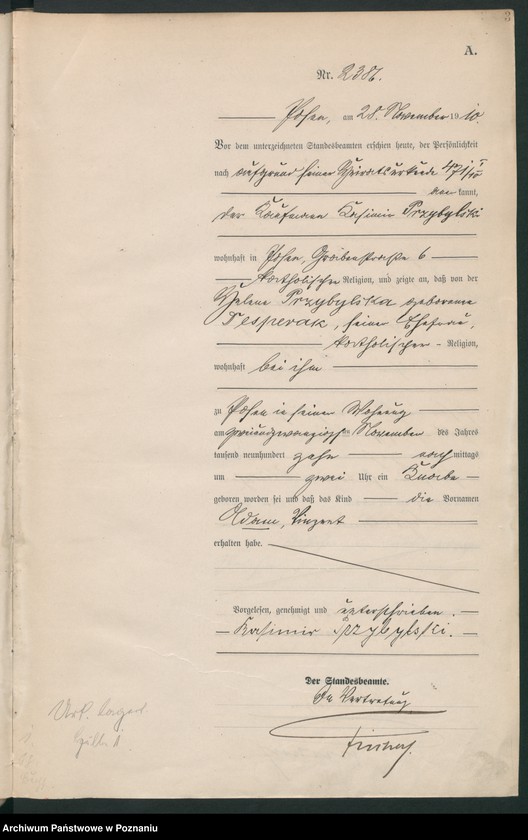 A.
Nr. 2386.
Posen, am 28. November 1910.
Vor dem unterzeichneten Standesbeamten erschien heute, der Persönlichkeit
nach aufgrund seiner Heiratsurkunde
kannt,
der Kaufmann Kasimir Przybylski
wohnhaft in Posen, Grabenstraße 6
katholischer Religion, und zeigte an, daß von der
Helene Przybylska geborenen
Tesperak, seiner Ehefrau,
katholischer Religion,
wohnhaft bei ihm
zu Posen in seiner Wohnung
am zweiundzwanzigsten November des Jahres
tausend neunhundert zehn nachmittags
um zwei Uhr ein Knabe
geboren worden sei und daß das Kind die Vornamen
Adam, Vinzent
erhalten habe.
Vorgelesen, genehmigt und unterschrieben.
Kasimir Przybylski.
Der Standesbeamte.
In Vertretung
Archiwum Państwowe w Poznaniu